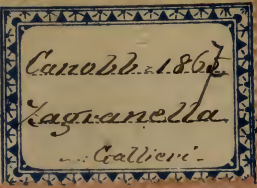 Canobb. 1867
Zagranella
Gallieri.